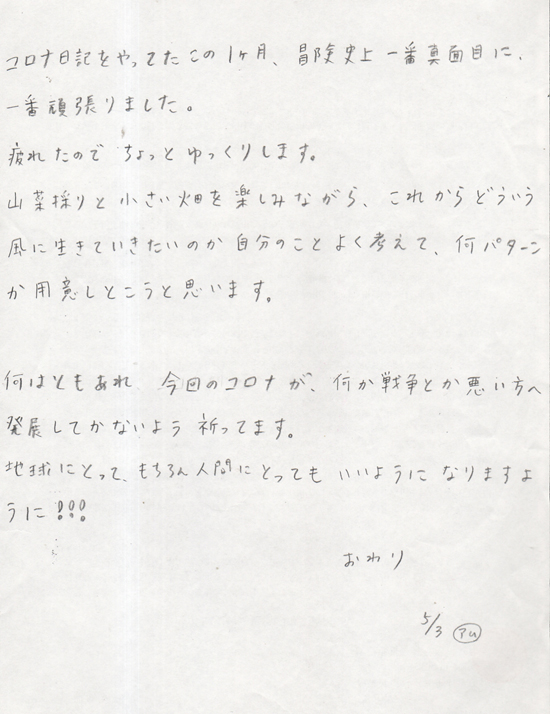 コロナ日記をやってたこの1ヶ月、冒険史上一番真面目に、
一番頑張りました。
疲れたので ちょっとゆっくりします。
山菜採りと小さい畑を楽しみながら、これからどういう
風に生きていきたいのか自分のことよく考えて、何パターン
か用意しとこうと思います。
何はともあれ 今回のコロナが、何か戦争とか悪い方へ
発展してかないよう 祈ってます。
地球にとって、もちろん人間にとっても いいように なりますよ
うに!!!
おわり
5/3 アム